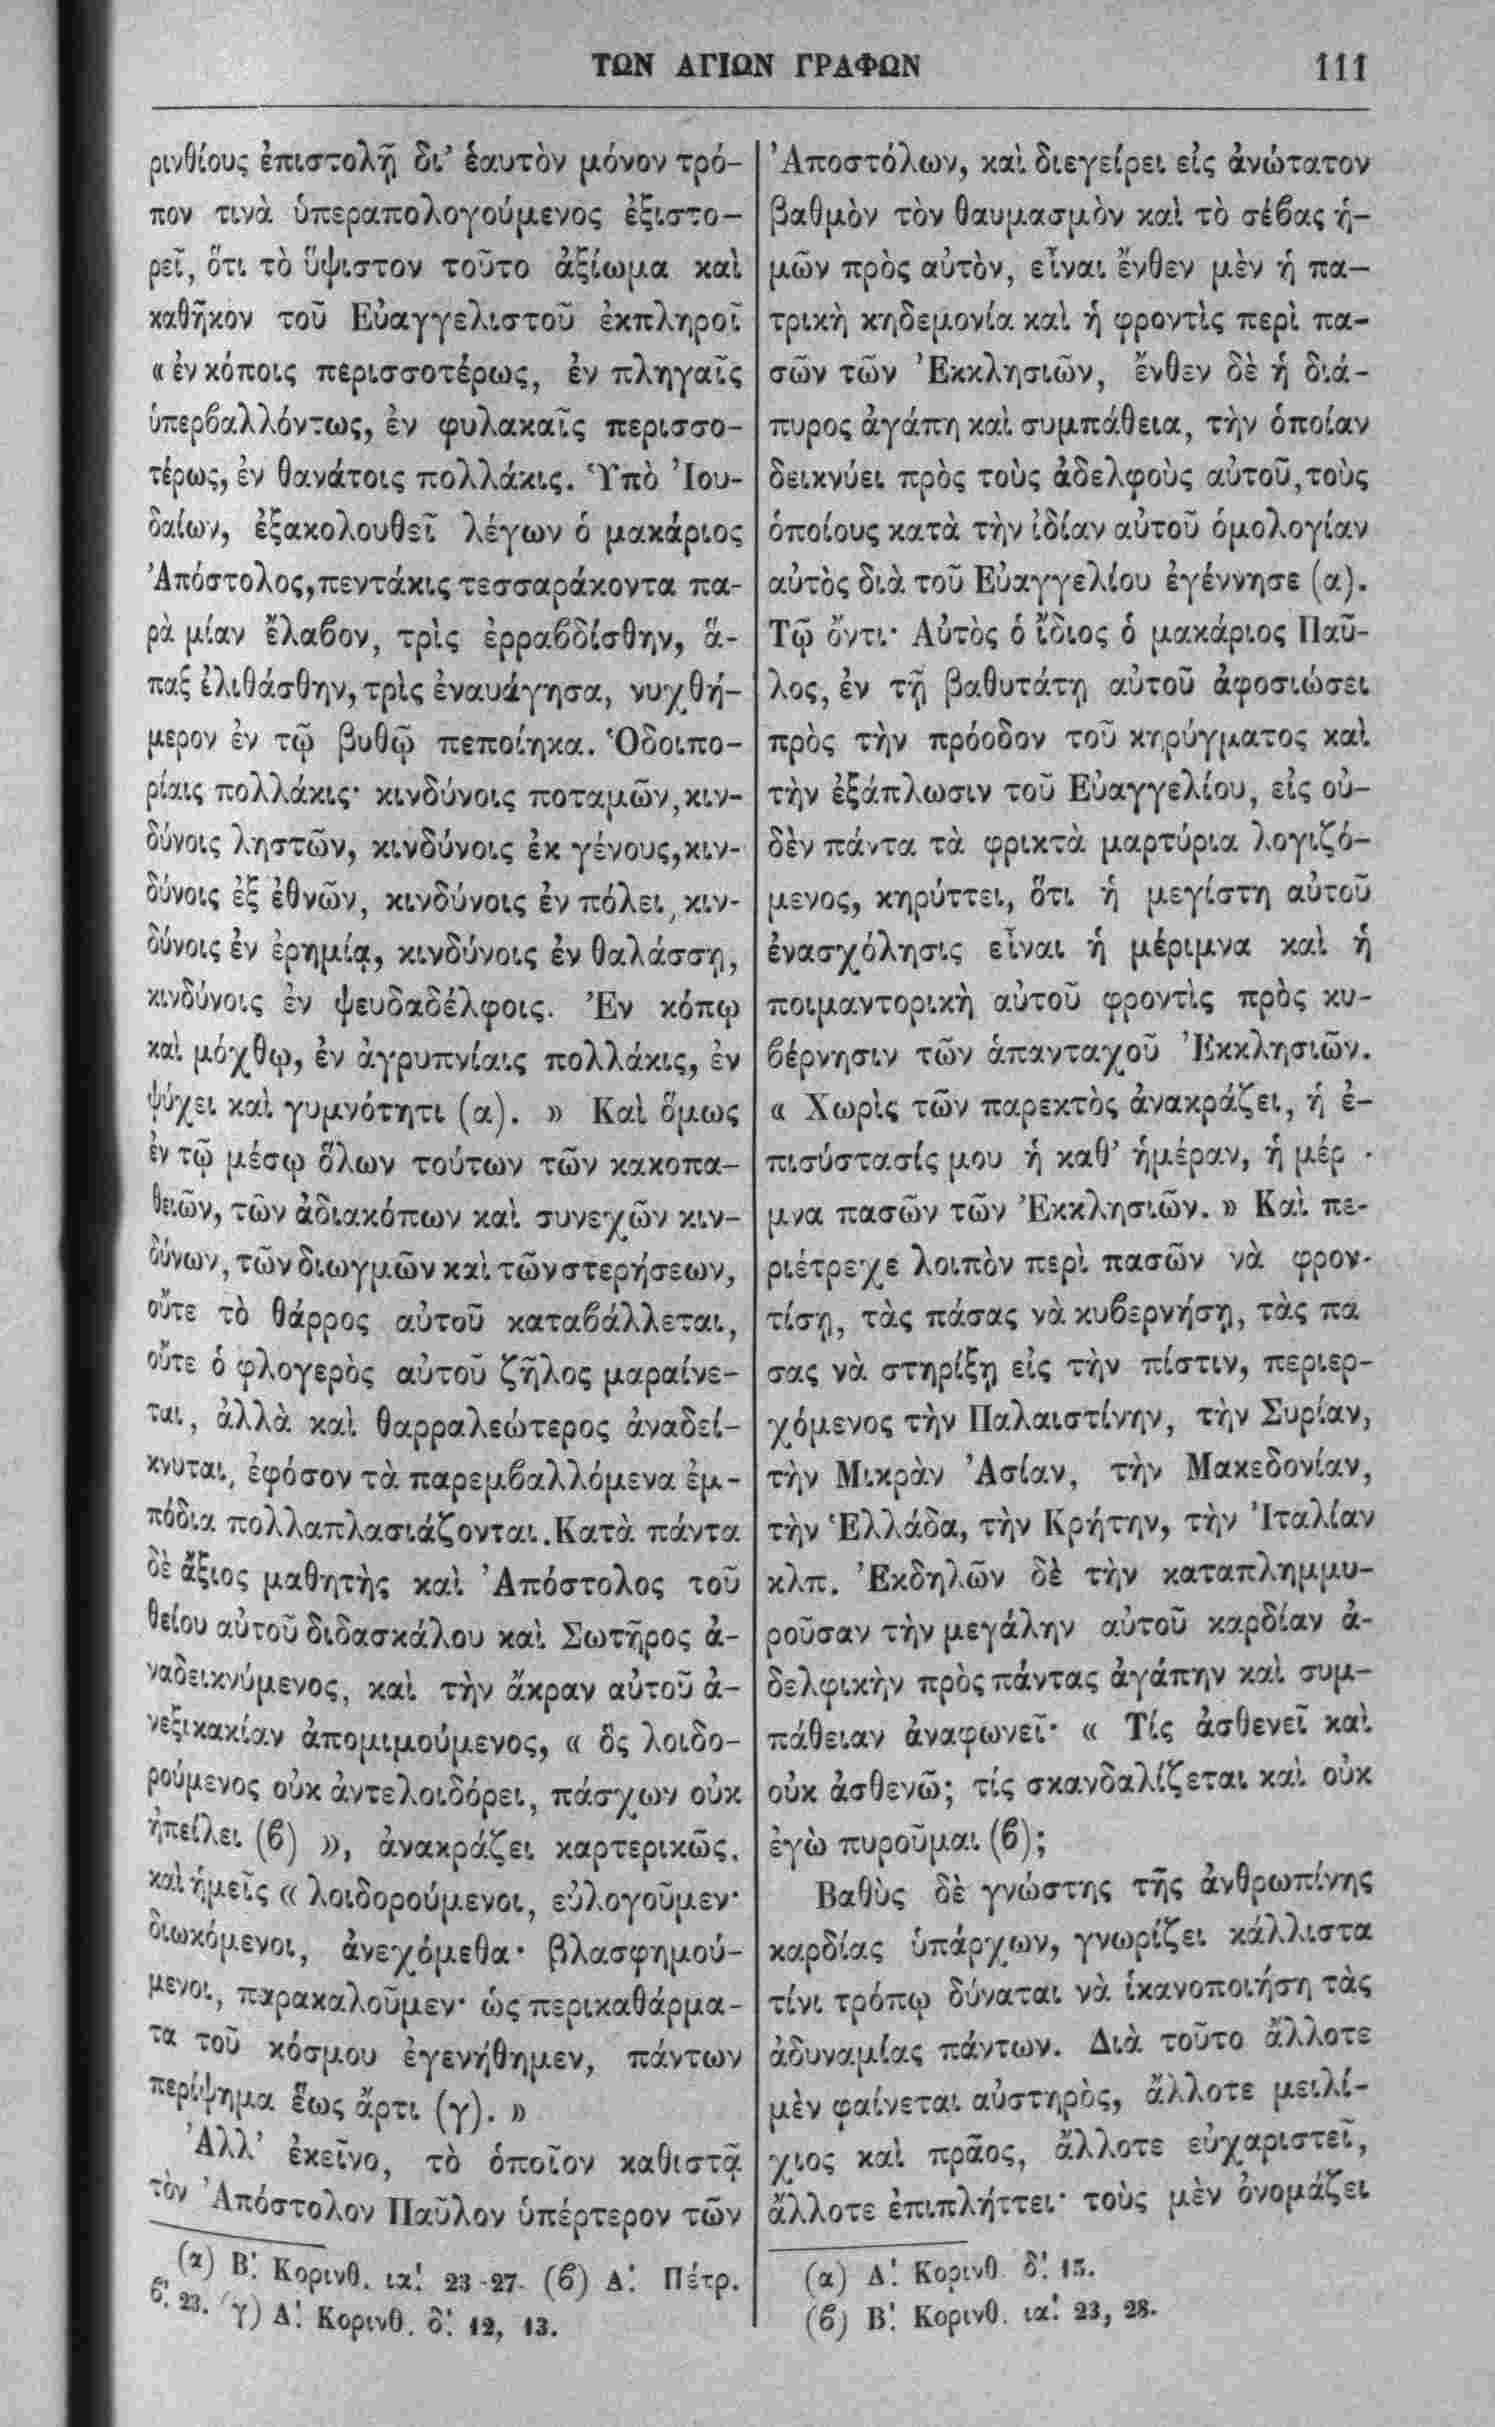 ΤΩΝ ΑΓΙΩΝ ΓΡΑΦΩΝ
111
ρινθίους ἐπιστολῇ δι' ἑαυτὸν μόνον τρό-
πον τινὰ ὑπεραπολογούμενος ἐξιστο-
ρεῖ, ὅτι τὸ ὕψιστον τοῦτο ἀξίωμα καὶ
καθῆκον τοῦ Εὐαγγελιστοῦ ἐκπληροῖ
« ἐν κόποις περισσοτέρως, ἐν πληγαῖς
ὑπερϐαλλόντως, ἐν φυλακαῖς περισσο-
τέρως, ἐν θανάτοις πολλάκις. Ὑπὸ Ἰου-
δαίων, ἐξακολουθεῖ λέγων ὁ μακάριος
Ἀπόστολος, πεντάκις τεσσαράκοντα πα-
ρὰ μίαν ἔλαϐον, τρὶς ἐρραϐδίσθην, ἅ-
παξ ἐλιθάσθην, τρὶς ἐναυάγησα, νυχθή-
μερον ἐν τῷ βυθῷ πεποίηκα. Ὁδοιπο-
ρίαις πολλάκις· κινδύνοις ποταμῶν, κιν-
δύνοις ληστῶν, κινδύνοις ἐκ γένους, κιν-
δύνοις ἐξ ἐθνῶν, κινδύνοις ἐν πόλει, κιν-
δύνοις ἐν ἐρημίᾳ, κινδύνοις ἐν θαλάσσῃ,
κινδύνοις ἐν ψευδαδέλφοις. Ἐν κόπῳ
καὶ μόχθῳ, ἐν ἀγρυπνίαις πολλάκις, ἐν
ψύχει καὶ γυμνότητι (α). » Καὶ ὅμως
ἐν τῷ μέσῳ ὅλων τούτων τῶν κακοπα-
θειῶν, τῶν ἀδιακόπων καὶ συνεχῶν κιν-
δύνων, τῶν διωγμῶν καὶ τῶν στερήσεων,
οὔτε τὸ θάρρος αὐτοῦ καταϐάλλεται,
οὔτε ὁ φλογερὸς αὐτοῦ ζῆλος μαραίνε-
ται, ἀλλὰ καὶ θαρραλεώτερος ἀναδεί-
κνυται, ἐφόσον τὰ παρεμϐαλλόμενα ἐμ-
πόδια πολλαπλασιάζονται. Κατὰ πάντα
δὲ ἄξιος μαθητὴς καὶ Ἀπόστολος τοῦ
θείου αὐτοῦ διδασκάλου καὶ Σωτῆρος ἀ-
ναδεικνύμενος, καὶ τὴν ἄκραν αὐτοῦ ἀ-
νεξικακίαν ἀπομιμούμενος, « ὃς λοιδο-
ρούμενος οὐκ ἀντελοιδόρει, πάσχων οὐκ
ἠπείλει (ϐ) », ἀνακράζει καρτερικῶς.
καὶ ἡμεῖς « λοιδορούμενοι, εὐλογοῦμεν·
διωκόμενοι, ἀνεχόμεθα· βλασφημού-
μενοι, παρακαλοῦμεν· ὡς περικαθάρμα-
τα τοῦ κόσμου ἐγενήθημεν, πάντων
περίψημα ἕως ἄρτι (γ). »
Ἀλλ' ἐκεῖνο, τὸ ὁποῖον καθιστᾷ
τὸν Ἀπόστολον Παῦλον ὑπέρτερον τῶν
(α) Β'. Κορινθ. ια'. 23-27. (ϐ) Α'. Πέτρ.
ϐ'. 23. (γ) Α'. Κορινθ. δ'. 12, 13.
Ἀποστόλων, καὶ διεγείρει εἰς ἀνώτατον
βαθμὸν τὸν θαυμασμὸν καὶ τὸ σέϐας ἡ-
μῶν πρὸς αὐτὸν, εἶναι ἔνθεν μὲν ἡ πα-
τρικὴ κηδεμονία καὶ ἡ φροντὶς περὶ πα-
σῶν τῶν Ἐκκλησιῶν, ἔνθεν δὲ ἡ διά-
πυρος ἀγάπη καὶ συμπάθεια, τὴν ὁποίαν
δεικνύει πρὸς τοὺς ἀδελφοὺς αὐτοῦ, τοὺς
ὁποίους κατὰ τὴν ἰδίαν αὐτοῦ ὁμολογίαν
αὐτὸς διὰ τοῦ Εὐαγγελίου ἐγέννησε (α).
Τῷ ὄντι· Αὐτὸς ὁ ἴδιος ὁ μακάριος Παῦ-
λος, ἐν τῇ βαθυτάτῃ αὐτοῦ ἀφοσιώσει
πρὸς τὴν πρόοδον τοῦ κηρύγματος καὶ
τὴν ἐξάπλωσιν τοῦ Εὐαγγελίου, εἰς οὐ-
δὲν πάντα τὰ φρικτὰ μαρτύρια λογιζό-
μενος, κηρύττει, ὅτι ἡ μεγίστη αὐτοῦ
ἐνασχόλησις εἶναι ἡ μέριμνα καὶ ἡ
ποιμαντορικὴ αὐτοῦ φροντὶς πρὸς κυ-
ϐέρνησιν τῶν ἁπανταχοῦ Ἐκκλησιῶν.
« Χωρὶς τῶν παρεκτὸς ἀνακράζει, ἡ ἐ-
πισύστασίς μου ἡ καθ' ἡμέραν, ἡ μέρ ·
μνα πασῶν τῶν Ἐκκλησιῶν. » Καὶ πε-
ριέτρεχε λοιπὸν περὶ πασῶν νὰ φρον-
τίσῃ, τὰς πάσας νὰ κυϐερνήσῃ, τὰς πα
σας νὰ στηρίξῃ εἰς τὴν πίστιν, περιερ-
χόμενος τὴν Παλαιστίνην, τὴν Συρίαν,
τὴν Μικρὰν Ἀσίαν, τὴν Μακεδονίαν,
τὴν Ἑλλάδα, τὴν Κρήτην, τὴν Ἰταλίαν
κλπ. Ἐκδηλῶν δὲ τὴν καταπλημμυ-
ροῦσαν τὴν μεγάλην αὐτοῦ καρδίαν ἀ-
δελφικὴν πρὸς πάντας ἀγάπην καὶ συμ-
πάθειαν ἀναφωνεῖ· « Τίς ἀσθενεῖ καὶ
οὐκ ἀσθενῶ; τίς σκανδαλίζεται καὶ οὐκ
ἐγὼ πυροῦμαι (ϐ);
Βαθὺς δὲ γνώστης τῆς ἀνθρωπίνης
καρδίας ὑπάρχων, γνωρίζει κάλλιστα
τίνι τρόπῳ δύναται νὰ ἱκανοποιήσῃ τὰς
ἀδυναμίας πάντων. Διὰ τοῦτο ἄλλοτε
μὲν φαίνεται αὐστηρὸς, ἄλλοτε μειλί-
χιος καὶ πρᾶος, ἄλλοτε εὐχαριστεῖ,
ἄλλοτε ἐπιπλήττει· τοὺς μὲν ὀνομάζει
(α) Α'. Κορινθ. δ'. 15.
(ϐ) Β'. Κορινθ. ια'. 23, 28.